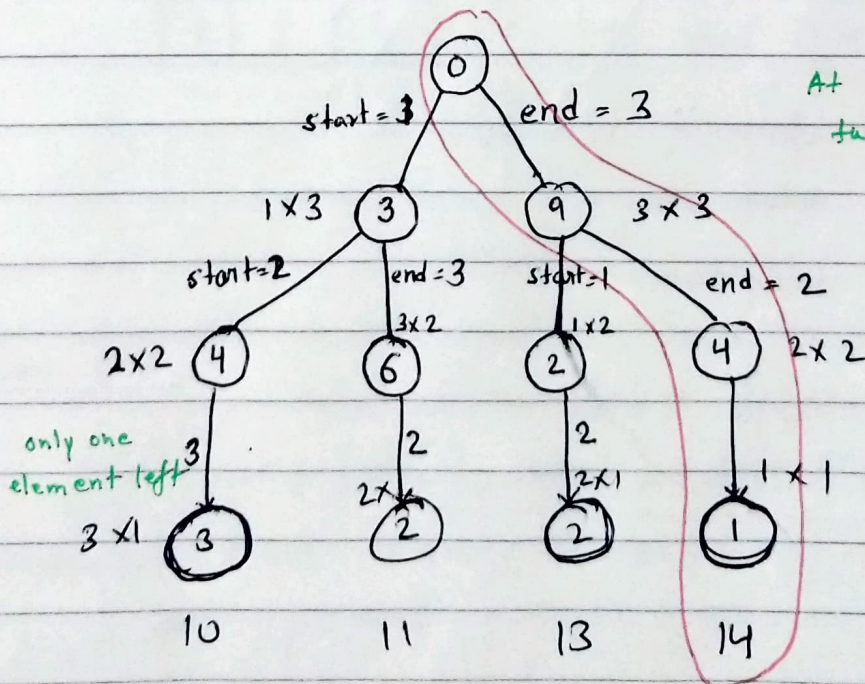 0
At
start = 3 end = 3
1 × 3 3 9 3 × 3
start=2 end=3 start=1 end = 2
3×2 1×2
2×2 4 6 2 4 2 × 2
only one
element left 3 2 2
2× 2×1 1 × 1
3 ×1 3 2 2 1
10 11 13 14